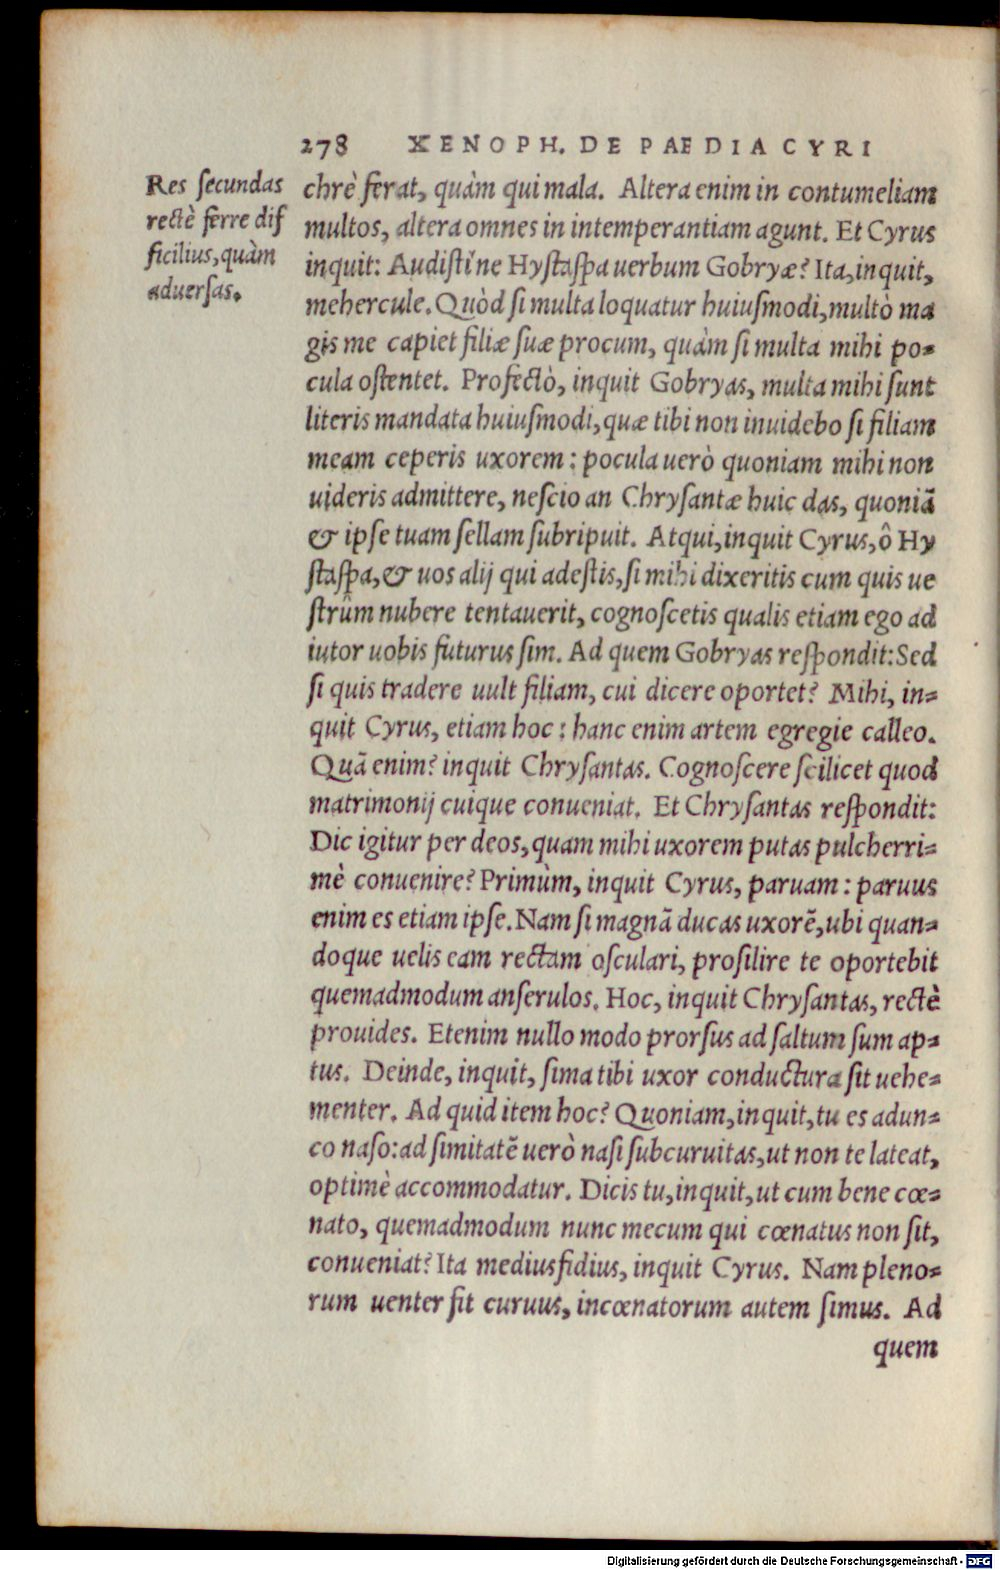 278 XENOPH. DE PAEDIA CYRI
Res secundas
rectè ferre dif
ficilius, quàm
aduersas.
chrè ferat, quàm qui mala. Altera enim in contumeliam
multos, altera omnes in intemperantiam agunt. Et Cyrus
inquit: Audistíne Hystaspa uerbum Gobryæ? Ita, inquit,
mehercule. Quòd si multa loquatur huiusmodi, multò ma
gis me capiet filiæ suæ procum, quàm si multa mihi po-
cula ostentet. Profectò, inquit Gobryas, multa mihi sunt
literis mandata huiusmodi, quæ tibi non inuidebo si filiam
meam ceperis uxorem: pocula uerò quoniam mihi non
uideris admittere, nescio an Chrysantæ huic das, quoniã
& ipse tuam sellam subripuit. Atqui, inquit Cyrus, ô Hy
staspa, & uos alij qui adestis, si mihi dixeritis cum quis ue
strûm nubere tentauerit, cognoscetis qualis etiam ego ad
iutor uobis futurus sim. Ad quem Gobryas respondit: Sed
si quis tradere uult filiam, cui dicere oportet? Mihi, in-
quit Cyrus, etiam hoc: hanc enim artem egregie calleo.
Quã enim? inquit Chrysantas. Cognoscere scilicet quod
matrimonij cuique conueniat. Et Chrysantas respondit:
Dic igitur per deos, quam mihi uxorem putas pulcherri-
mè conuenire? Primùm, inquit Cyrus, paruam: paruus
enim es etiam ipse. Nam si magnã ducas uxorẽ, ubi quan-
doque uelis eam rectam osculari, prosilire te oportebit
quemadmodum anserulos. Hoc, inquit Chrysantas, rectè
prouides. Etenim nullo modo prorsus ad saltum sum ap-
tus. Deinde, inquit, sima tibi uxor conductura sit uehe-
menter. Ad quid item hoc? Quoniam, inquit, tu es adun-
co naso: ad simitatẽ uerò nasi subcuruitas, ut non te lateat,
optimè accommodatur. Dicis tu, inquit, ut cum bene cœ-
nato, quemadmodum nunc mecum qui cœnatus non sit,
conueniat? Ita mediusfidius, inquit Cyrus. Nam pleno-
rum uenter fit curuus, incœnatorum autem simus. Ad
quem
Digitalisierung gefördert durch die Deutsche Forschungsgemeinschaft - DFG